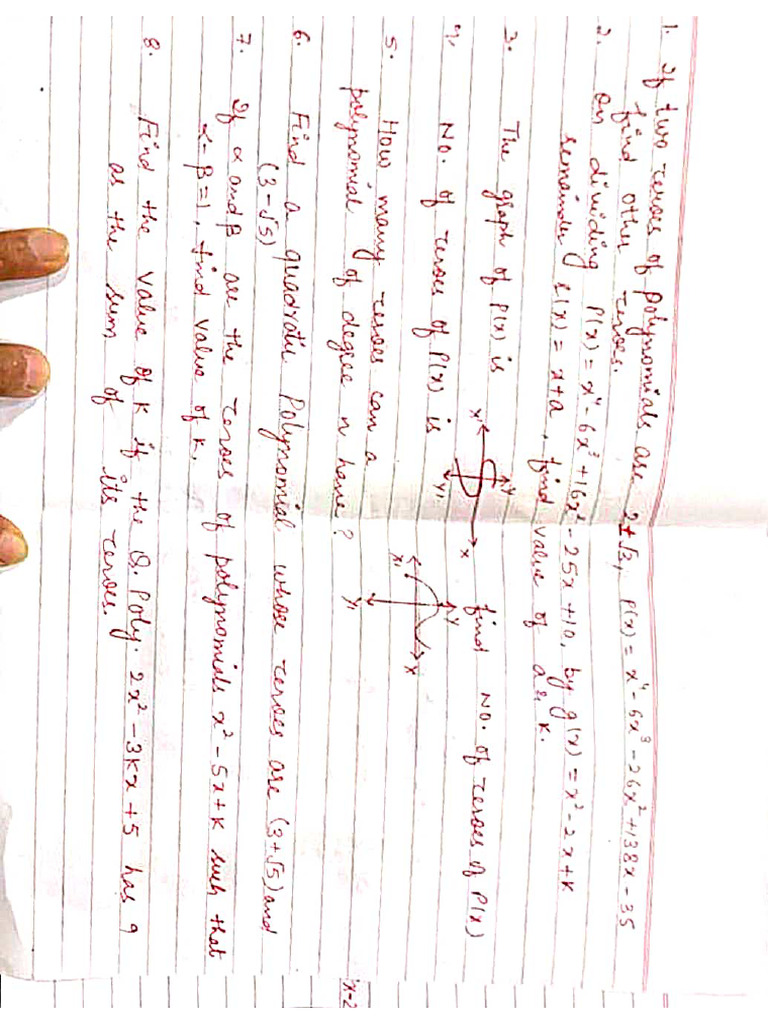 1. If two zeroes of polynomials are 2±√3, P(x) = x⁴ - 6x³ - 26x² + 138x - 35
find other zeroes.
2. on dividing P(x) = x⁴ - 6x³ + 16x² - 25x + 10, by g(x) = x² - 2x + K
remainder r(x) = x + a, find value of a & K.
3. The graph of P(x) is find No. of zeroes of P(x)
Y
X' X
Y'
4. No. of zeroes of P(x) is
Y
X' X
Y'
5. How many zeroes can a
polynomial of degree n have?
6. Find a quadratic Polynomial whose zeroes are (3+√5) and
(3-√5)
7. If α and β are the zeroes of polynomials x² - 5x + K such that
α - β = 1, find value of K.
8. Find the value of K if the Q. Poly. 2x² - 3Kx + 5 has 9
as the sum of its zeroes.
x-2